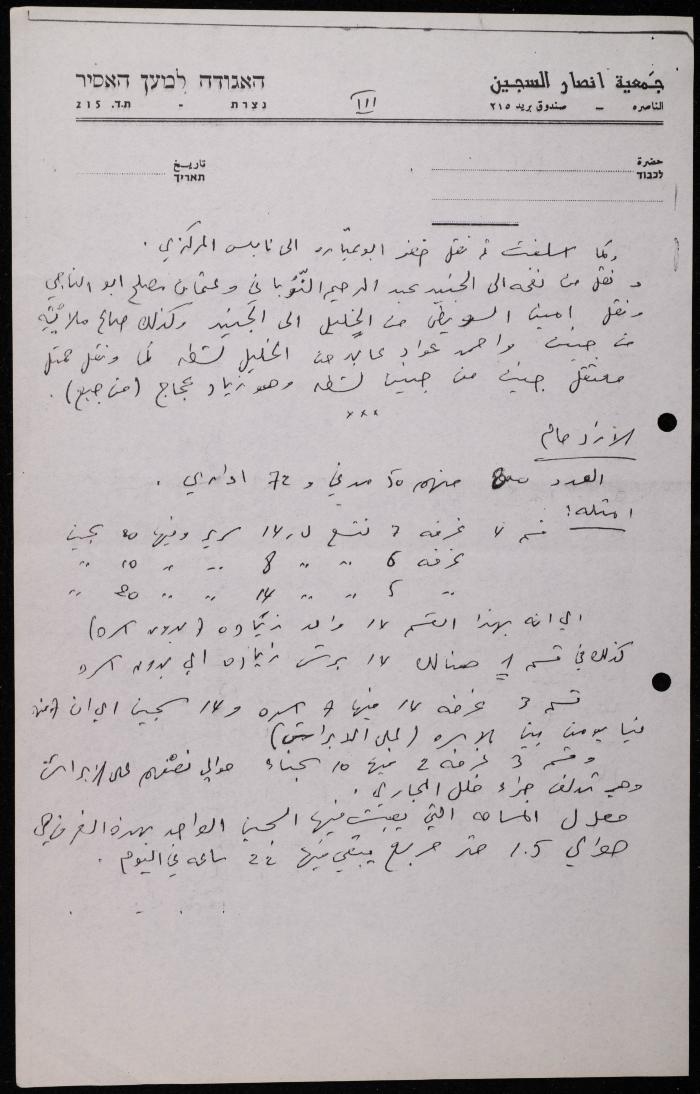 جمعية انصار السجين
האגודה למען האסיר
الناصره – صندوق بريد ٢١٥
נצרת - ת.ד. 215
III
حضرة
לכבוד
تاريخ
תאריך
وكما اسلفت تم نقل خضر ابو عبّاره الى نابلس المركزي .
و نقل من نفحه الى الجنيد عبد الرحيم النّوباني وعثمان مصلح ابو الناجي
ونقل امين السويطي من الخليل الى الجنيد وكذلك صالح
من جنين واحمد عواد عابد من الخليل لشطه كما ونقل ممثل
معتقل جنين من جنين لشطه وهو زياد (من جبع) .
×××
الازدحام
العدد منهم 50 مدني و 72 اداري .
امثله :
قسم غرفه تتسع سرير وفيها 20 سجين
غرفه 6 ,, ,, 8 ,, ,, 10 ,,
,, 5 ,, ,, 14 ,, ,, 20 ,,
اي انه بهذا القسم 17 واحد زياده (بدون اسره)
كذلك في قسم هنالك 17 برش زياده اي بدون اسره
قسم 3 غرفه فيها اسره سجين اي ان
ينامون بين الاسره (على الابراش)
وقسم 3 غرفه 2 فيها 10 سجناء حوالي نصفهم على الابراش
وهي تدلف جراء خلل المجاري .
معدل المساحه التي يعيش فيها السجين الواحد بهذه الغرف هي
حوالي 1.5 متر مربع يبقى فيها 22 ساعه في اليوم .